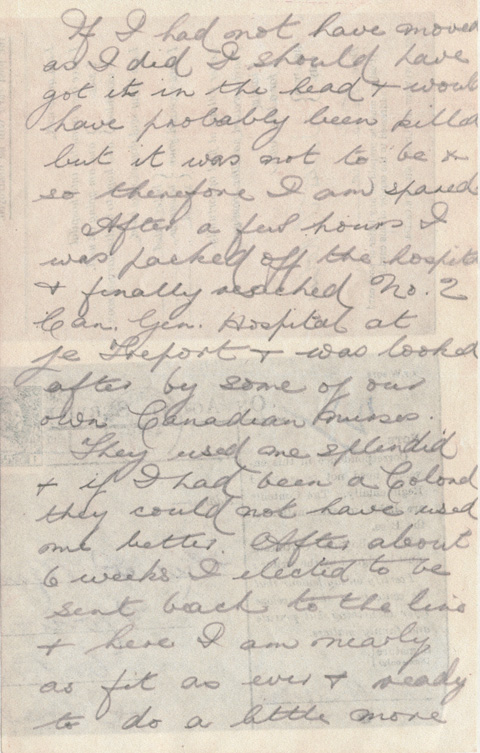 If I had not have moved
as I did I should have
got it in the head & would
have probably been killed
but it was not to be &
so therefore I am spared
After a few hours I
was packed off the hospital
& finally reached No. 2
Can. Gen. Hospital at
Le Treport & was looked
after by some of our
own Canadian nurses.
They used me splendid
& if I had been a Colonel
they could not have used
me better. After about
6 weeks I elected to be
sent back to the line
& here I am nearly
as fit as ever & ready
to do a little more